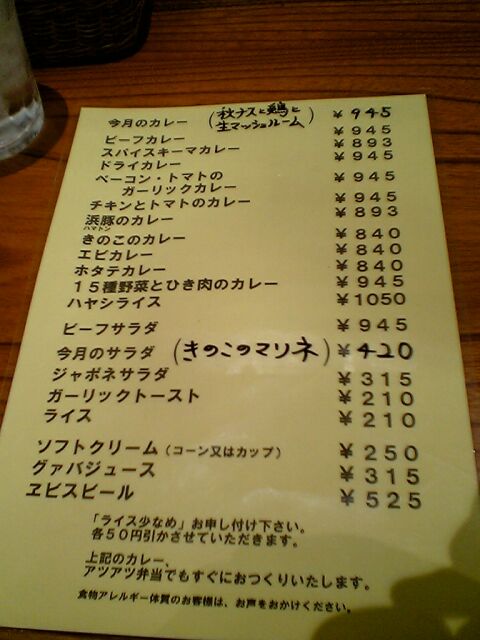 今月のカレー (秋ナスと鶏と
生マッシュルーム) ¥945
ビーフカレー ¥945
スパイスキーマカレー ¥893
ドライカレー ¥945
ベーコン・トマトの
ガーリックカレー ¥945
チキンとトマトのカレー ¥945
浜豚のカレー ¥893
ハマトン
きのこのカレー ¥840
エビカレー ¥840
ホタテカレー ¥840
15種野菜とひき肉のカレー ¥945
ハヤシライス ¥1050
ビーフサラダ ¥945
今月のサラダ (きのこのマリネ) ¥420
ジャポネサラダ ¥315
ガーリックトースト ¥210
ライス ¥210
ソフトクリーム (コーン又はカップ) ¥250
グァバジュース ¥315
ヱビスビール ¥525
「ライス少なめ」お申し付け下さい。
各50円引かさせていただきます。
上記のカレー、
アツアツ弁当でもすぐにおつくりいたします。
食物アレルギー体質のお客様は、お声をおかけください。